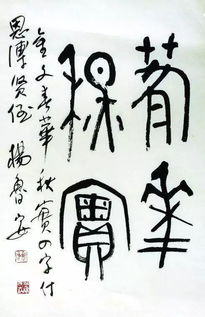 春華
秋實
金文春華秋實四字付
恩溥賢侄
楊魯安